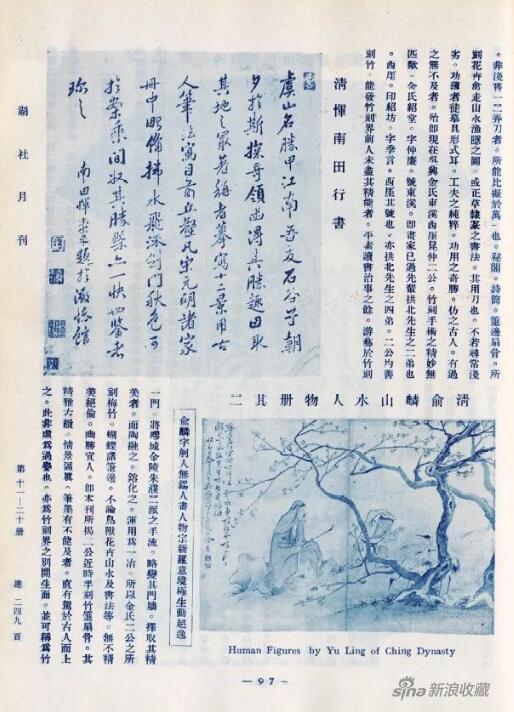 。非淺嘗一二弄刀者。所能比擬於萬一也。秘閣。詩筒。筆邊扇骨。所
刻花卉禽走山水漁隱之圖。或正草隸篆之書法。其用刀也。不若尋常淺
劣。功薄者徒摹具形式耳。工夫之純粹。功用之奇勝。仿之古人。有過
之無不及者。殆即現在吳興金氏東溪西厓昆仲二公。竹刻手術之精妙無
匹歟。金氏紹堂。字仲廉。號東溪。即畫家已過先輩拱北先生之二弟也
。西厓。印紹坊。字季言。西厓其號也。亦拱北先生之四弟。二公均善
刻竹。能發竹刻界前人未盡其精能者。平素讀書治事之餘。游藝於竹刻
清惲南田行書
虞山名勝甲江南吾友石谷子朝
夕於斯探奇領幽得其勝趣因取
其地之最著稱者摹寫十二景用古
人筆法寫目前丘壑凡宋元明諸家
冊中略備拂水飛流劍門秋色可
於案乘間收其勝槩亦一快也鑒者
珍之
南田惲壽平題於澂懷館
湖社月刊
清俞麟山水人物册其二
Human Figures by Yu Ling of Ching Dynasty
俞麟字剑人無錫人畫人物宗新羅意境極生動超逸
一門。將嘐城金陵朱濮二派之手流。略變其門牆。擇取其精
美者。而陶融之。鎔化之。運用爲一冶。所以金氏二公之所
刻梅竹。蝴蝶諸筆邊。不論鳥獸花卉山水及書法等。無不精
美絕倫。幽勝宜人。即本刊所揭二公近時手刻竹筆扇骨。其
精雅古緻。情景逼眞。筆墨有不能及者。直有駕於古人而上
之。此非虛爲過譽也。亦爲竹刻界之別開生面。並可稱爲竹
第十一—二十册
總 二四九 頁
— 97 —
sina 新浪收藏